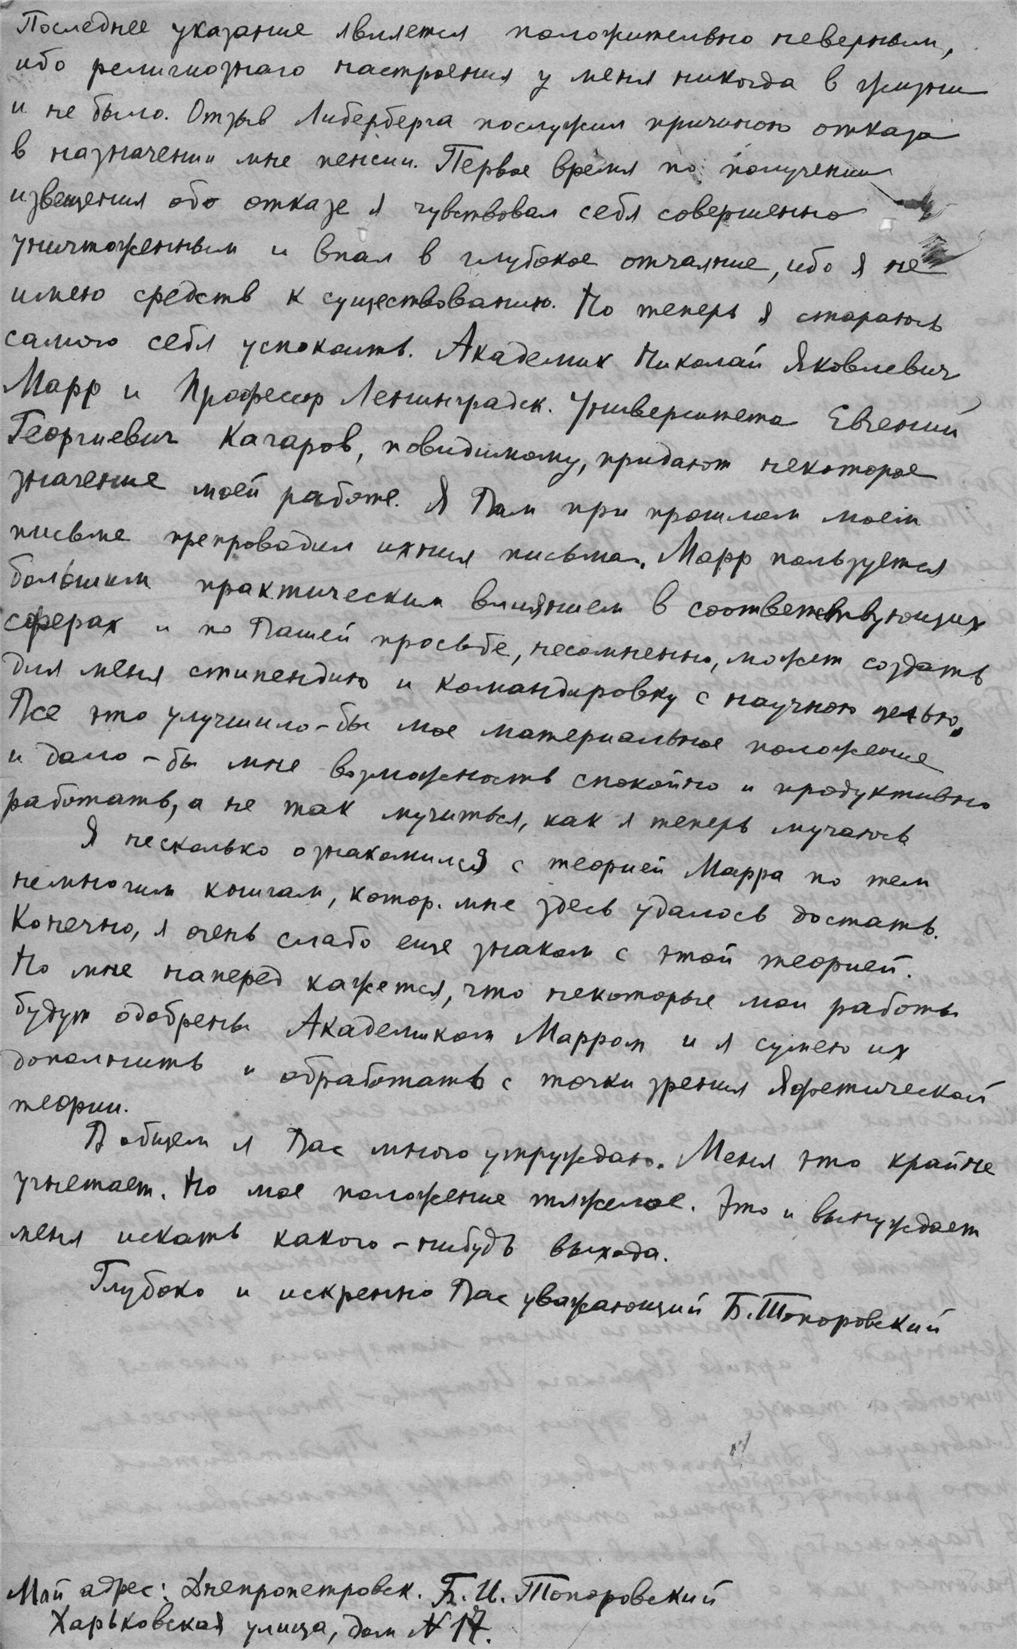 Последнее указание является положительно неверным,
ибо религиознаго настроения у меня никогда в жизни
и не было. Отзыв Либерберга послужил причиною отказа
в назначении мне пенсии. Первое время по получении
извещения обо отказе я чувствовал себя совершенно
уничтоженным и впал в глубокое отчаяние, ибо я не
имею средств к существованию. Но теперь я стараюсь
самого себя успокоить. Академик Николай Яковлевич
Марр и Профессор Ленинградск. Университета Евгений
Георгиевич Кагаров, повидимому, придают некоторое
значение моей работе. Я Вам при прошлом моем
письме препроводил ихния письма. Марр пользуется
большим практическим влиянием в соответствующих
сферах и по Вашей просьбе, несомненно, может создать
для меня стипендию и командировку с научною целью.
Все это улучшило-бы мое материальное положение
и дало-бы мне возможность спокойно и продуктивно
работать, а не так мучиться, как я теперь мучаюсь
Я несколько ознакомился с теорией Марра по тем
немногим книгам, котор. мне здесь удалось достать.
Конечно, я очень слабо еще знаком с этой теорией.
Но мне наперед кажется, что некоторые мои работы
будут одобрены Академиком Марром и я сумею их
дополнить и обработать с точки зрения Яфетической
теории.
В общем я Вас много утруждаю. Меня это крайне
угнетает. Но мое положение тяжелое. Это и вынуждает
меня искать какого-нибудь выхода.
Глубоко и искренно Вас уважающий Б. Топоровский
Мой адрес: Днепропетровск. Б. И. Топоровский
Харьковская улица, дом № 17.